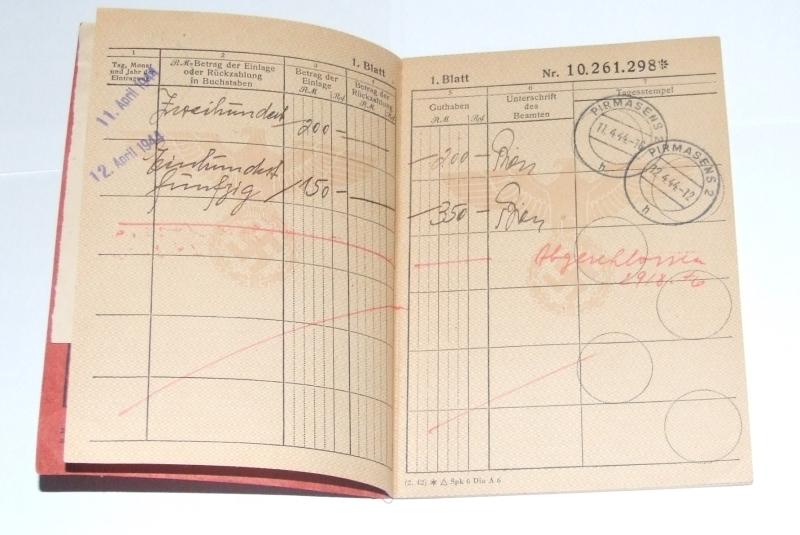 1
Tag, Monat
und Jahr der
Eintragung
2
RM-Betrag der Einlage
oder Rückzahlung
in Buchstaben
3
Betrag der
Einlage
RM Rpf
1. Blatt
4
Betrag der
Rückzahlung
RM Rpf
11. April 1944
Zweihundert
200 —
12. April 1944
Einhundert
fünfzig
150 —
1. Blatt
Nr. 10.261.298*
5
Guthaben
RM Rpf
6
Unterschrift
des
Beamten
7
Tagesstempel
— 200 —
PIRMASENS 2
11.4.44
h
— 350 —
PIRMASENS 2
12.4.44-12
h
Abgeschlossen
(2. 42) * △ Spk 6 Din A 6